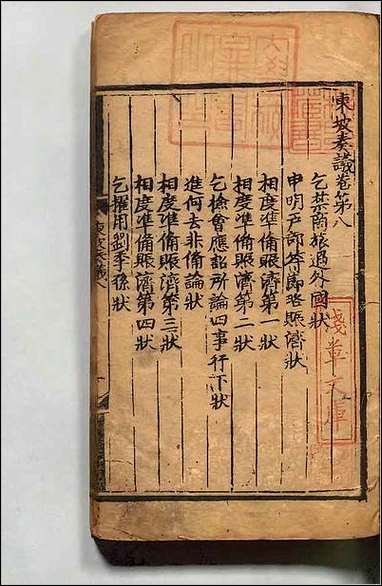 東坡奏議卷第八
乞禁商旅過外國狀
申明戶部符節略賑濟狀
相度準備賑濟第一狀
相度準備賑濟第二狀
乞檢會應詔所論四事行下狀
進何去非備論狀
相度準備賑濟第三狀
相度準備賑濟第四狀
乞擢用劉季孫狀
淺草文庫